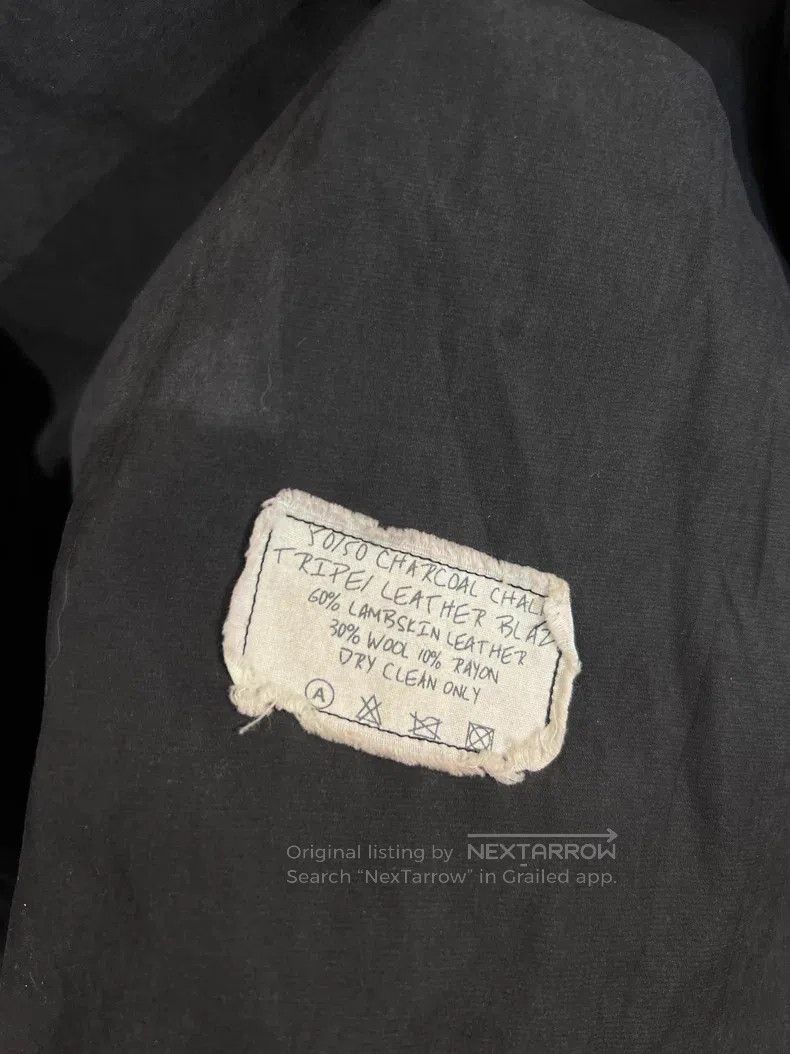 50/50 CHARCOAL CHAL
TRIPE/ LEATHER BLAZ
60% LAMBSKIN LEATHER
30% WOOL 10% RAYON
DRY CLEAN ONLY
A
Original listing by NEXTARROW
Search "NexTarrow" in Grailed app.